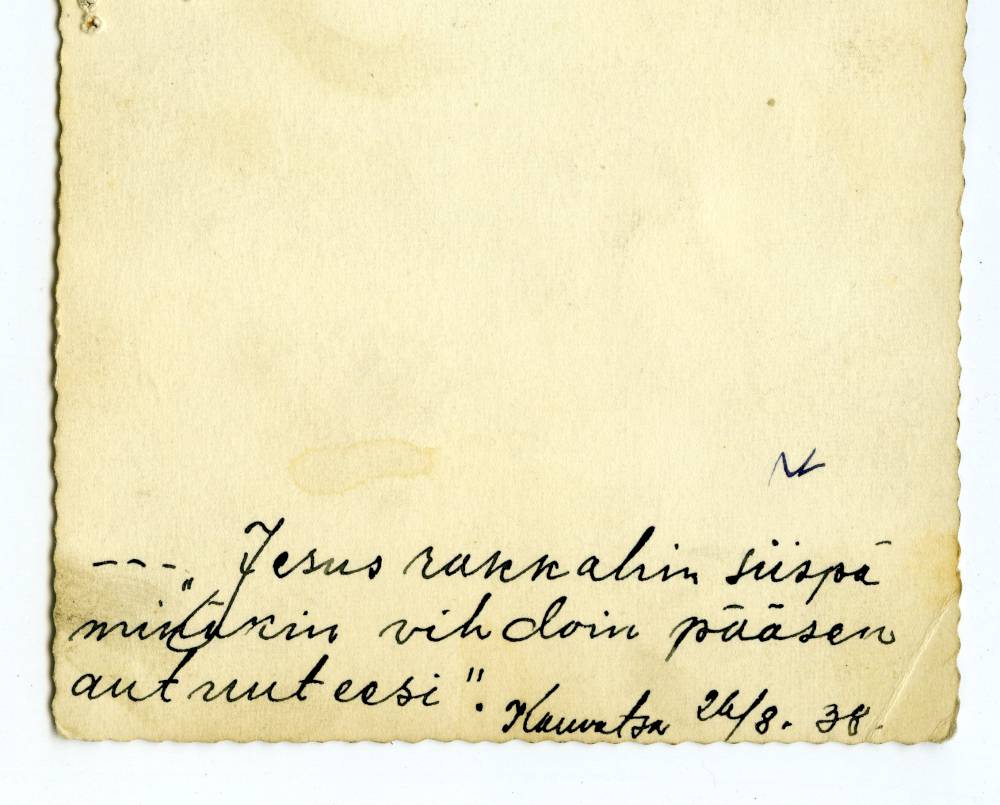 ---„ Jesus rakkahin siispä
minäkin vihdoin pääsen
autuuteesi".
Kauvatsa 26/8. 38.